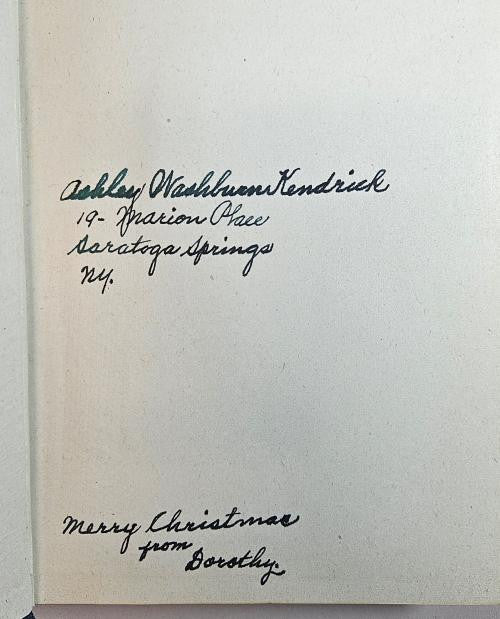 Ashley Washburn Kendrick
19- Marion Place
Saratoga Springs
NY.
Merry Christmas
from
Dorothy.